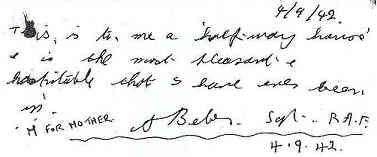 4/9/42.
This, is to, me a 'half-way house'
& is the most pleasant &
hospitable that I have ever been
in.
"M FOR MOTHER. A Beber. Sgt.. R.A.F.
4.9.42.